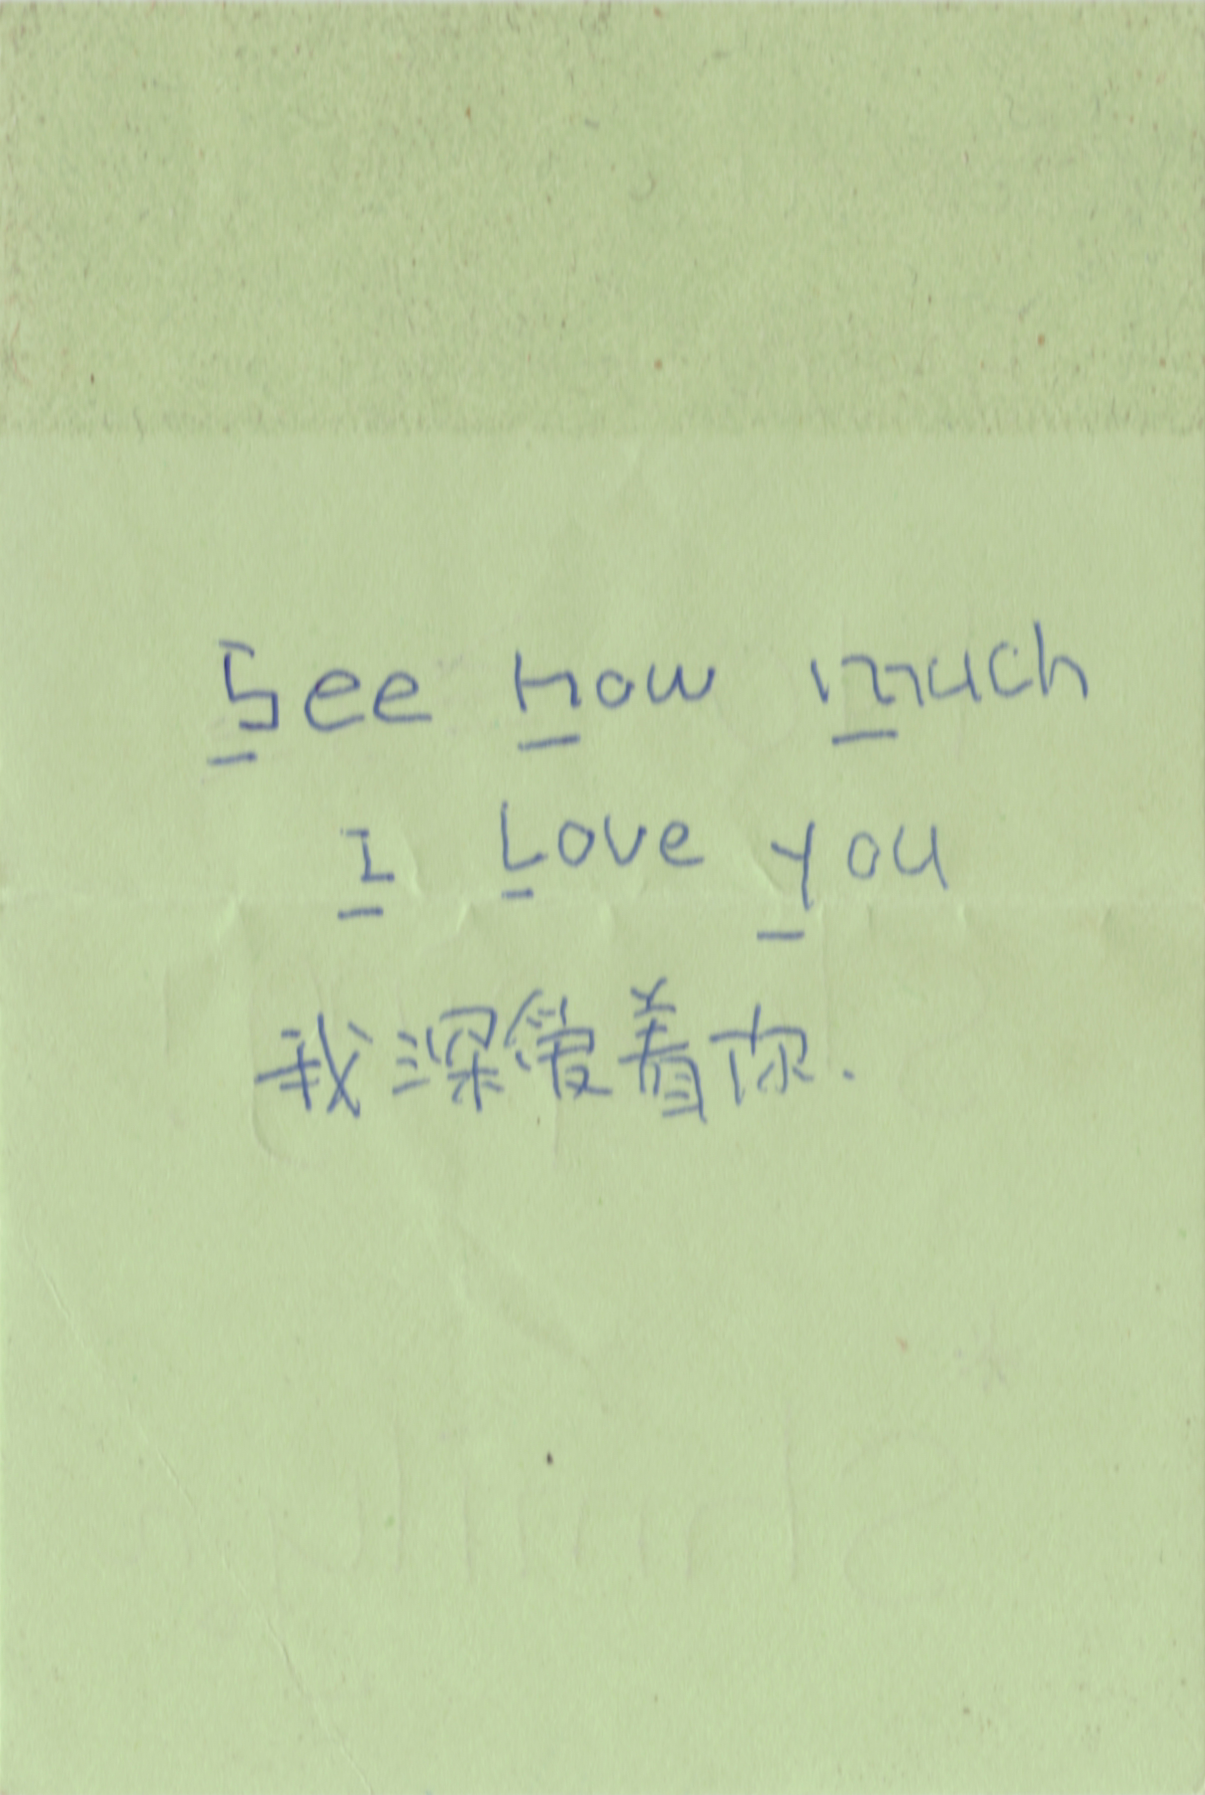 See How much
I Love you
我深爱着你.